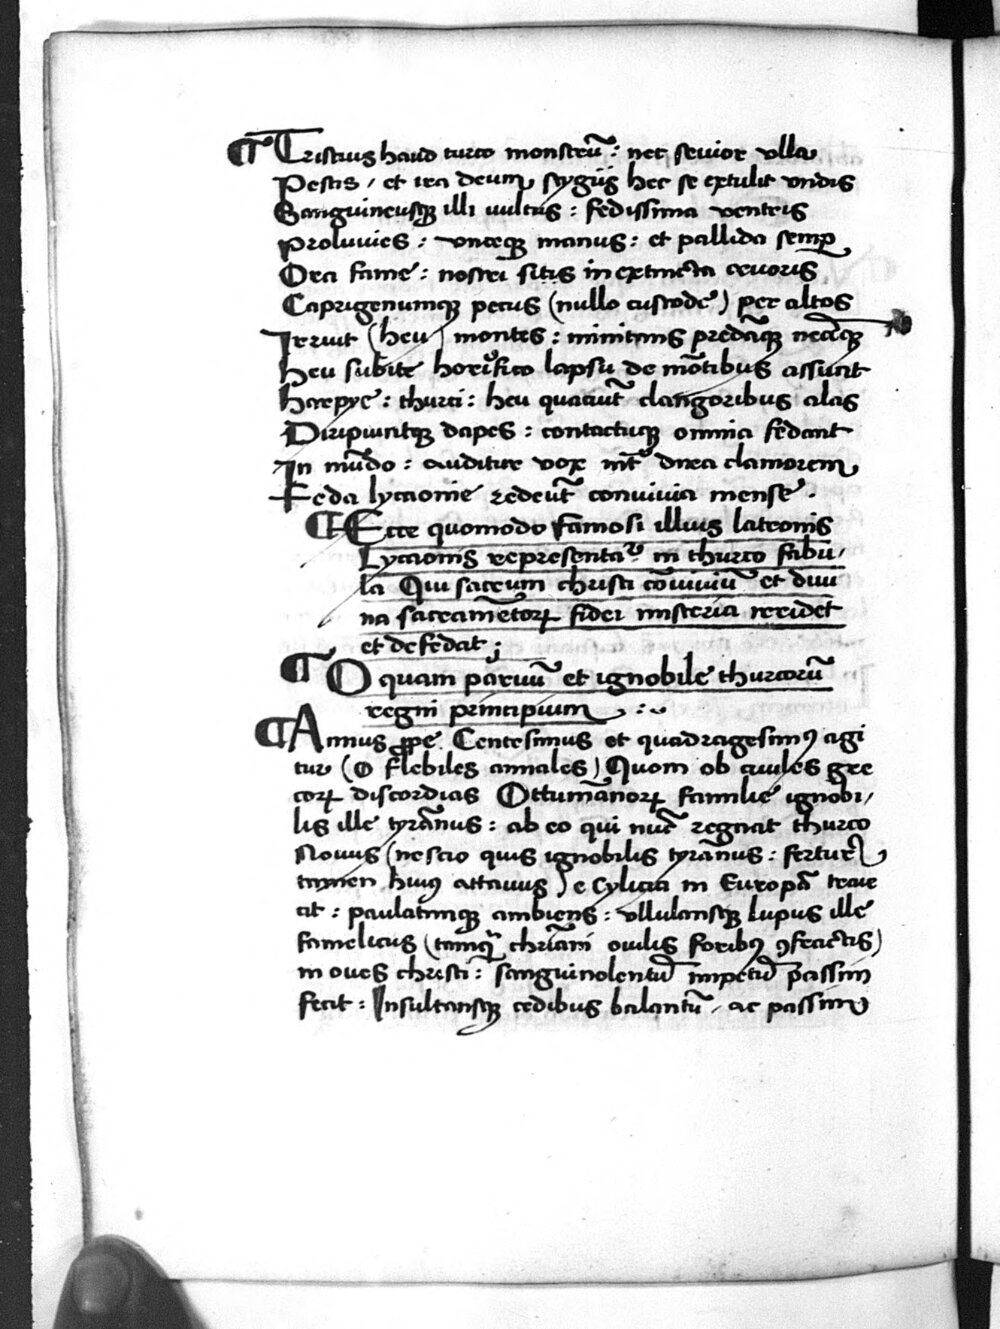 ¶ Tristius haud turco monstrū : nec sevior ulla
Pestis / et ira deum stygiis hec se extulit undis
Sanguineusq; illi vultus : fedissima ventris
Proluvies : unceq; manus : et pallida semp
Ora fame : nostri sitis inextincta cruoris
Caprigenumq; pecus (nullo custode) per altos
Ieruut (heu) montes : minitans predāq; necāq;
Heu subite horrifico lapsu de mōtibus assunt
Harpye : thurci : heu quatiūt clangoribus alas
Diripiuntq; dapes : contactuq; omnia fedant
In mūdo : auditur vox int dira clamorem
Feda lycaonie redeūt convivia mense .
¶ Ecce quomodo famosi illius latronis
Lycaonis representat in thurco fabu/
la Qui sacrum christi cōviviū et divi
na sacramētorꝝ fidei misteria reridet
et defedat ;
¶ O quam parvū et ignobile thurcorū
regni principium :~
¶ Annus ꝓpe Centesimus et quadragesimꝰ agi
tur (o flebiles annales) Quom ob civiles gre
corꝝ discordias Ottumānorꝝ familie ignobi/
lis ille tyrānus : ab eo qui nūc regnat thurco
Novus (nescio quis ignobilis tyrānus : fertur
tamen huiꝰ attavus) e Cylicia in Europā traie
cit : paulatimq; ambiens : ullulansq; lupus ille
famelicus (tamq̄ chriani ovilis foribꝰ ꝯfractis)
in oves christi : sanguinolentū impetū passim
fecit : Insultansq; cedibus balantū / ac passim